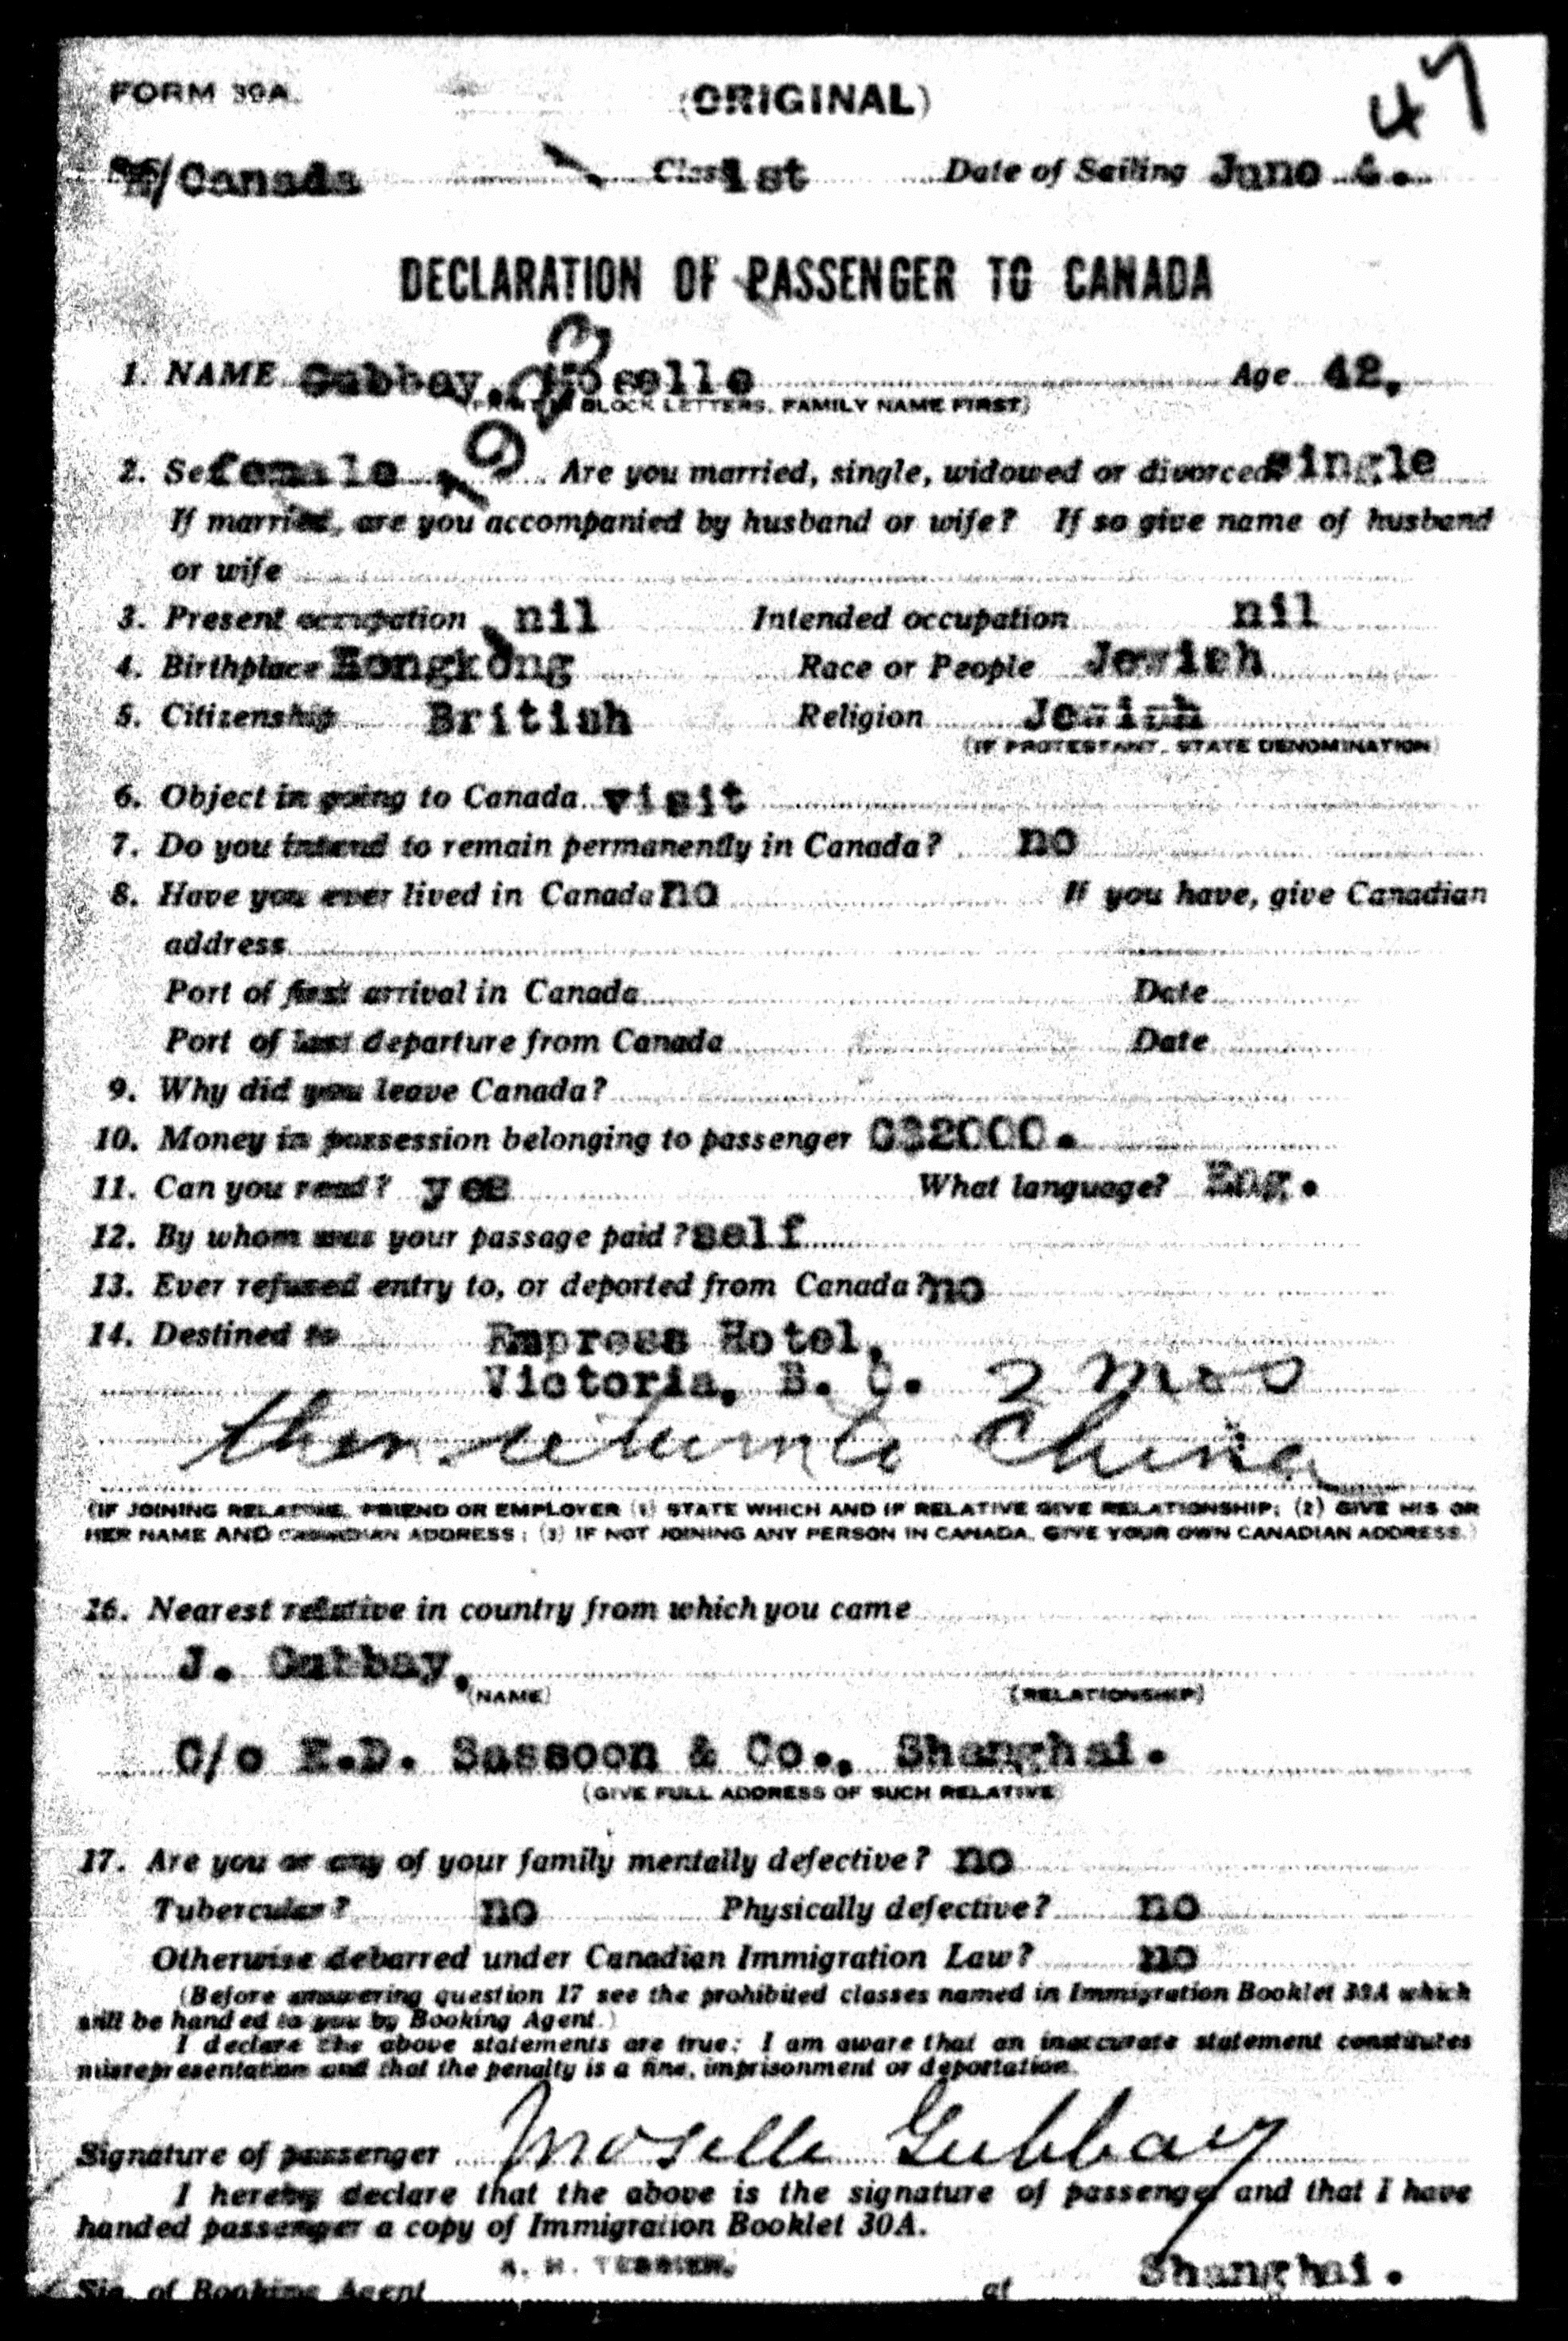 FORM 30A. (ORIGINAL) 47
/Canada Class 1st Date of Sailing June
DECLARATION OF PASSENGER TO CANADA
1. NAME Gubbay, Moselle Age 42,
(PRINT IN BLOCK LETTERS, FAMILY NAME FIRST)
2. Se female Are you married, single, widowed or divorced single
If married, are you accompanied by husband or wife? If so give name of husband
or wife
3. Present occupation nil Intended occupation nil
4. Birthplace Hongkong Race or People Jewish
5. Citizenship British Religion Jewish
(IF PROTESTANT, STATE DENOMINATION)
6. Object in going to Canada visit
7. Do you intend to remain permanently in Canada? no
8. Have you ever lived in Canada no If you have, give Canadian
address
Port of first arrival in Canada Date
Port of last departure from Canada Date
9. Why did you leave Canada?
10. Money in possession belonging to passenger G$2000.
11. Can you read? yes What language? Eng.
12. By whom was your passage paid? self
13. Ever refused entry to, or deported from Canada? no
14. Destined to Empress Hotel,
Victoria, B. C. 2 mos
then return to China
(IF JOINING RELATIVE, FRIEND OR EMPLOYER (1) STATE WHICH AND IF RELATIVE GIVE RELATIONSHIP; (2) GIVE HIS OR
HER NAME AND CANADIAN ADDRESS; (3) IF NOT JOINING ANY PERSON IN CANADA, GIVE YOUR OWN CANADIAN ADDRESS.)
16. Nearest relative in country from which you came
J. Gubbay,
(NAME) (RELATIONSHIP)
C/o E.D. Sassoon & Co., Shanghai.
(GIVE FULL ADDRESS OF SUCH RELATIVE
17. Are you or any of your family mentally defective? no
Tubercular? no Physically defective? no
Otherwise debarred under Canadian Immigration Law? no
(Before answering question 17 see the prohibited classes named in Immigration Booklet 30A which
will be handed to you by Booking Agent.)
I declare the above statements are true: I am aware that an inaccurate statement constitutes
misrepresentation and that the penalty is a fine, imprisonment or deportation.
Signature of passenger Moselle Gubbay
I hereby declare that the above is the signature of passenger and that I have
handed passenger a copy of Immigration Booklet 30A.
Sig. of Booking Agent at Shanghai.